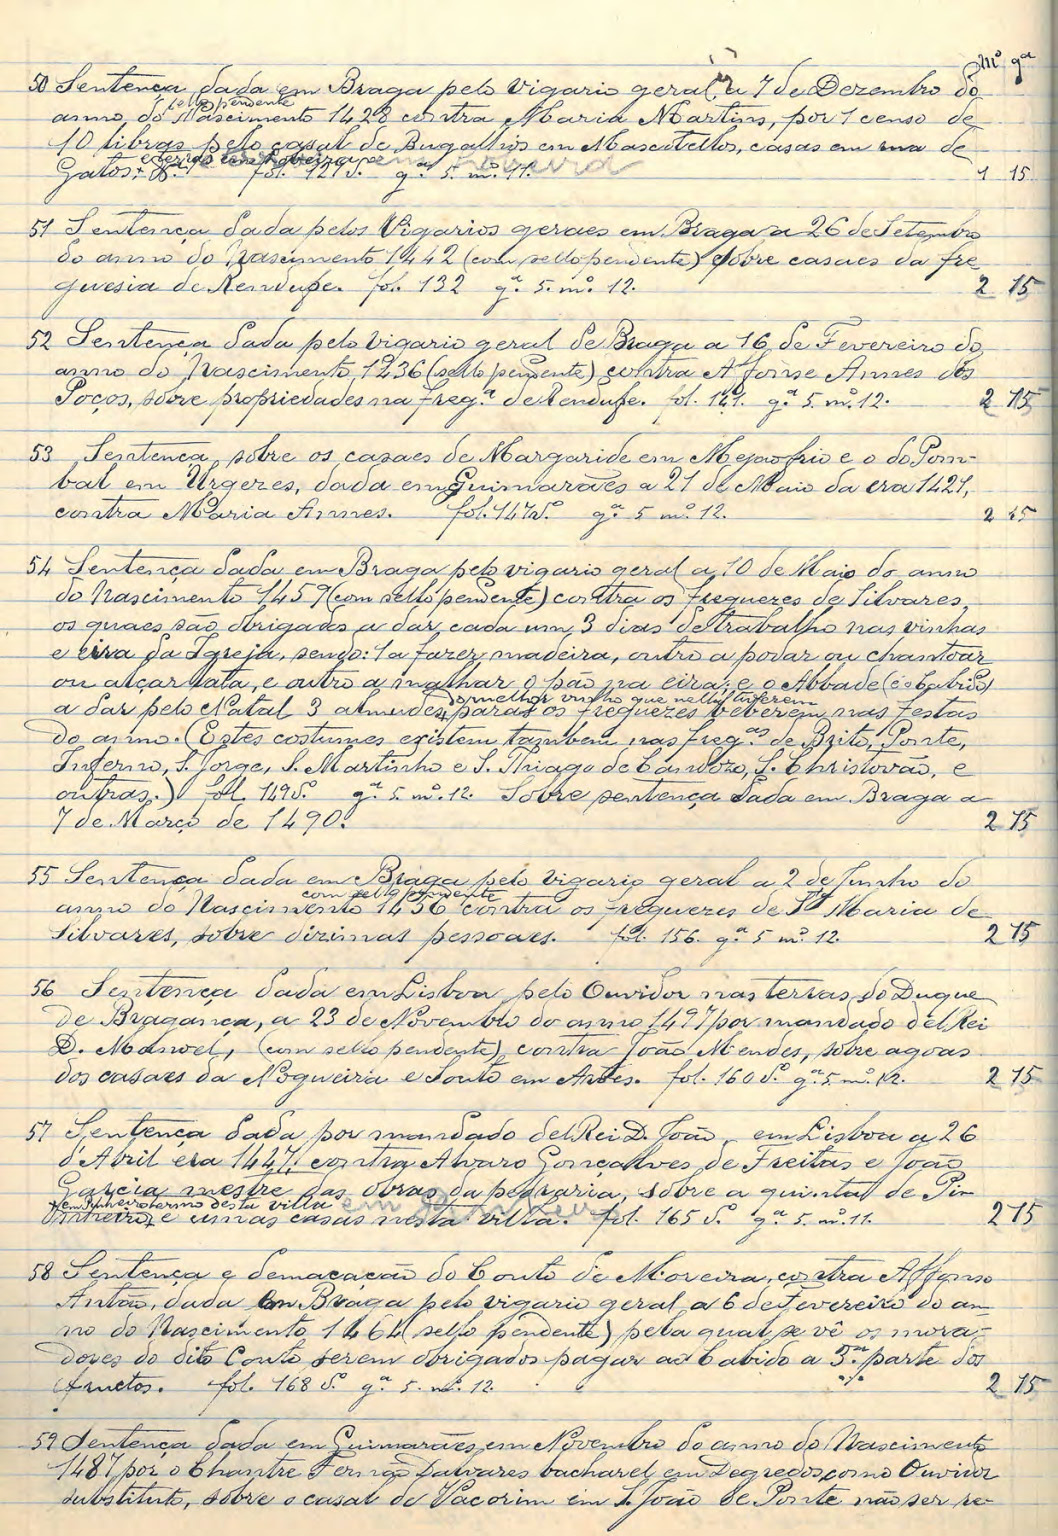 Mº gª
50 Sentença dada em Braga pelo vigario geral a 7 de Dezembro do
(sello pendente)
anno do Nascimento 1428 contra Maria Martins, por 1 censo de
10 libras pelo casal de Bugalhos em Mascotellos, casas em rua de
Gatos, fol. 127 v. gª 5. mº 11. 1 15
51 Sentença dada pelos Vigarios geraes em Braga a 26 de Setembro
do anno do Nascimento 1442 (com sello pendente) sobre casaes da fre
guesia de Rendufe. fol. 132 gª 5. mº 12. 2 15
52 Sentença dada pelo vigario geral de Braga a 16 de Fevereiro do
anno do Nascimento 1236 (sello pendente) contra Affonse Annes dos
Poços, sobre propriedades na fregª de Rendufe. fol. 121. gª 5. mº 12. 2 15
53 Sentença sobre os casaes de Margaride em Mejaofrio e o do Pom-
bal em Urgezes, dada em Guimarães a 21 de Maio da era 1421,
contra Maria Annes. fol. 147 v. gª 5 mº 12. 2 15
54 Sentença dada em Braga pelo vigario geral a 10 de Maio do anno
do Nascimento 1459 (com sello pendente) contra os freguezes de Silvares,
os quaes são obrigados a dar cada um 3 dias de trabalho nas vinhas
e eira da Igreja, sendo: 1 a fazer madeira, outro a podar ou chantoar
ou alçar lata, e outro a malhar o pão na eira; e o Abbade (é o Cabido)
do melhor vinho que nella tiverem
a dar pelo Natal 3 almudes para os freguezes beberem nas festas
do anno. (Estes costumes existem tambem nas fregªs de Brito, Ponte,
Inferno, S. Jorge, S. Martinho e S. Thiago de Candozo, S. Christovão, e
outras.) fol. 149 v. gª 5. mº 12. Sobre sentença dada em Braga a
7 de Março de 1490. 2 15
55 Sentença dada em Braga pelo vigario geral a 2 de Junho do
com sello pendente
anno do Nascimento 1456 contra os freguezes de Stª Maria de
Silvares, sobre dizimas pessoaes. fol. 156. gª 5 mº 12. 2 15
56 Sentença dada em Lisboa pelo Ouvidor nas terras do Duque
de Bragança, a 23 de Novembro do anno 1497 por mandado d'el Rei
D. Manoel, (com sello pendente), contra João Mendes, sobre agoas
dos casaes da Nogueira e Souto em Atães. fol. 160 v. gª 5. mº 12. 2 15
57 Sentença dada por mandado del Rei D. João, em Lisboa a 26
d'Abril era 1427, contra Alvaro Gonçalves de Freitas e João
Garcia mestre das obras da pedraria, sobre a quinta de Pin
em Pinheiro termo desta villa
e umas casas nesta villa. fol. 165 v. gª 5. mº 11. 2 15
58 Sentença e demacação do Couto de Moreira, contra Affonso
Antão, dada em Braga pelo vigario geral a 6 de Fevereiro do an-
no do Nascimento 1464 (sello pendente) pela qual se vê os mora-
dores do dito Couto serem obrigados pagar ao Cabido a 5ª parte dos
fructos. fol. 168 v. gª 5. mº 12. 2 15
59 Sentença dada em Guimarães em Novembro do anno do Nascimento
1487 por o Chantre Fernão Tavares bacharel em Degredos, como Ouvidor
substituto, sobre o casal de Vacorim em S. João de Ponte não ser re-